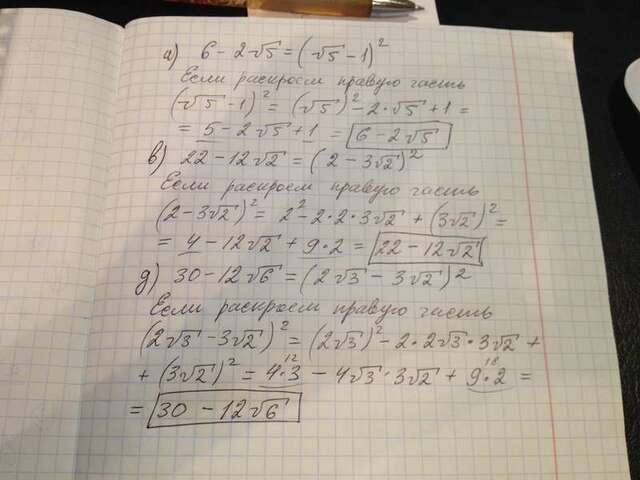 а) 6 - 2√5 = (√5 - 1)²
Если раскроем правую часть
(√5 - 1)² = (√5)² - 2·√5 + 1 =
= 5 - 2√5 + 1 = 6 - 2√5
в) 22 - 12√2 = (2 - 3√2)²
Если раскроем правую часть
(2 - 3√2)² = 2² - 2·2·3√2 + (3√2)² =
= 4 - 12√2 + 9·2 = 22 - 12√2
д) 30 - 12√6 = (2√3 - 3√2)²
Если раскроем правую часть
(2√3 - 3√2)² = (2√3)² - 2·2√3·3√2 +
12 18
+ (3√2)² = 4·3 - 4√3·3√2 + 9·2 =
= 30 - 12√6